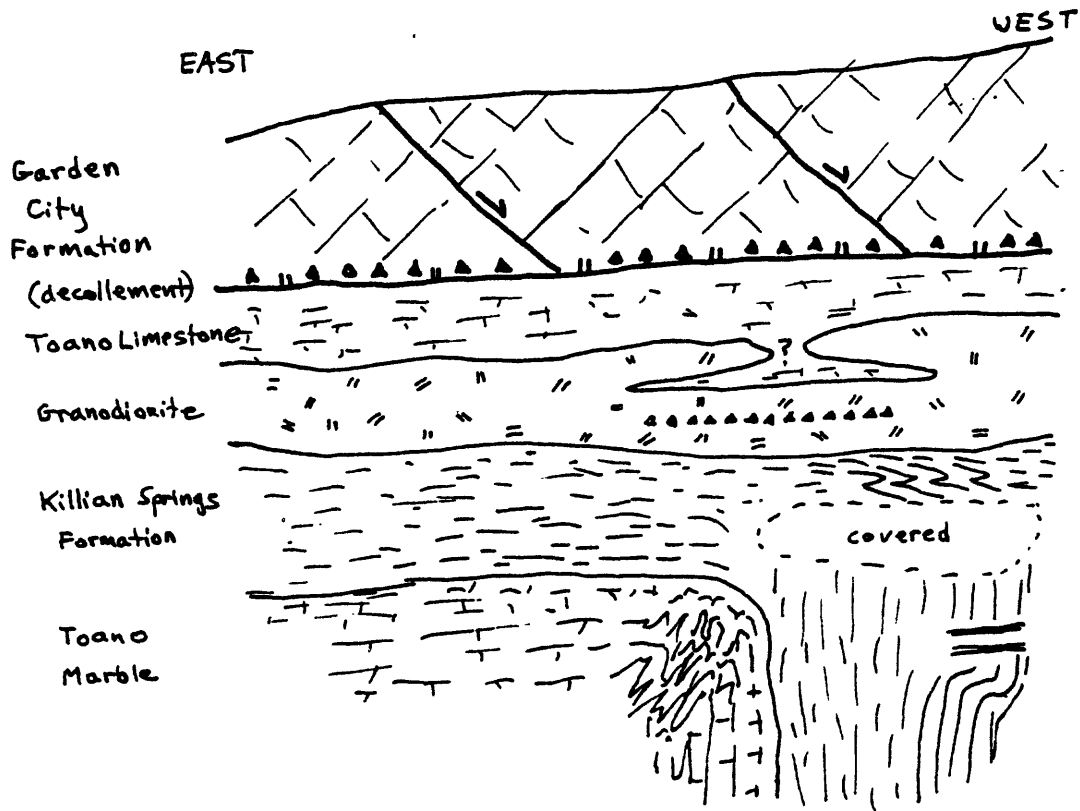 EAST
WEST
Garden
City
Formation
(decollement)
Toano Limestone
?
Granodiorite
Killian Springs
Formation
covered
Toano
Marble